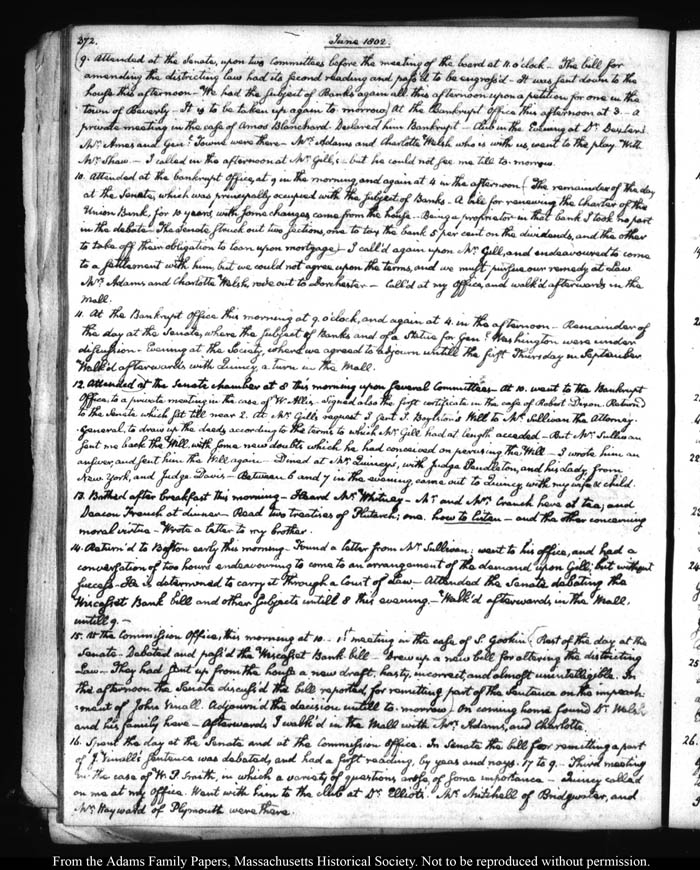 372.
June 1802.
9. Attended at the Senate, upon two Committees before the meeting of the board at 11. o'clock — The bill for
amending the districting law had its second reading and pass'd to be engross'd — It was sent down to the
house this afternoon — We had the subject of Banks again all this afternoon upon a petition for one in the
town of Beverly — It is to be taken up again to morrow) At the Bankrupt Office this afternoon at 3 — A
private meeting in the case of Amos Blanchard. Declared him Bankrupt — And in the Evening at Dr. Dexter's
Mr. Ames and Genl. Towne were there — Mrs. Adams and Charlotte Welsh who is with us, went to the play. With
Mr. Shaw — I called in the afternoon at Mr. Gill's — but he could not see me till to-morrow.
10. Attended at the bankrupt Office, at 9 in the morning and again at 4 in the afternoon ( The remainder of the day
at the Senate, which was principally occupied with the subject of Banks. A bill for renewing the Charter of the
Union Bank, for 10 years with some changes came from the house — Being a proprietor in that bank I took no part
in the debate. The Senate struck out two sections, one to tax the bank 5 per cent on the dividends, and the other
to take off their obligation to loan upon mortgage) I call'd again upon Mr. Gill, and endeavoured to come
to a settlement with him, but we could not agree upon the terms, and we must pursue our remedy at Law
Mrs. Adams and Charlotte Welsh, rode out to Dorchester — Call'd at my Office, and walk'd afterwards in the
Mall.
11. At the Bankrupt Office this morning at 9. o'clock, and again at 4. in the afternoon — Remainder of
the day at the Senate, where the subject of Banks and of a Statue for Genl. Washington were under
discussion — Evening at the Society, where we agreed to adjourn untill the first Thursday in September
Walk'd afterwards with Quincy a turn in the Mall.
12. Attended at the Senate chamber at 8 this morning upon several Committees — At 10. went to the Bankrupt
Office, to a private meeting in the case of W. Allis — Signed also the first certificate in the case of Robert Dixon. Return'd
to the Senate which sat till near 2. At Mr. Gill's request I sent I. Boylston's Will to Mr. Sullivan the Attorney-
General, to draw up the deeds according to the terms to which Mr. Gill had at length acceded — But Mr. Sullivan
sent me back the Will, with some new doubts which he had conceived on perusing the Will — I wrote him an
answer, and sent him the Will again — Dined at Mr. Quincey's, with Judge Pendleton, and his lady from
New York, and Judge Davis — Between 6 and 7 in the evening, came out to Quincy, with my wife & child.
13. Bathed after breakfast this morning — Heard Mr. Whitney — Mr. and Mrs. Cranch here at tea; and
Deacon French at dinner — Read two treatises of Plutarch; one. how to listen — and the other concerning
moral virtue — Wrote a letter to my brother.
14. Return'd to Boston early this morning — Found a letter from Mr. Sullivan; went to his office, and had a
conversation of two hours endeavouring to come to an arrangement of the demand upon Gill; but without
success — He is determined to carry it through a Court of Law — Attended the Senate debating the
Wiscasset Bank bill and other subjects untill 8 this evening — Walk'd afterwards in the Mall,
untill 9. —
15. At the Commission Office, this morning at 10 — 1st. meeting in the case of S. Gookin ( Rest of the day at the
Senate — Debated and pass'd the Wiscasset Bank bill — Drew up a new bill for altering the districting
Law — They had sent up from the house a new draft, hasty, incorrect, and almost unintelligible. In
the afternoon the Senate discuss'd the bill reported for remitting part of the Sentence on the impeach-
-ment of John Vinall. Adjourn'd the decision untill to-morrow) On coming home found Dr. Welsh
and his family here — Afterwards I walk'd in the Mall with Mrs. Adams, and Charlotte.
16. Spent the day at the Senate and at the Commission Office. In Senate the bill for remitting a part
of J. Vinall's Sentence was debated, and had a first reading, by yeas and nays. 17 to 9 — Third meeting
in the case of W. P. Smith, in which a variety of questions arose of some importance — Quincy called
on me at my office. Went with him to the club at Dr. Elliot's. Mr. Mitchell of Bridgwater, and
Mr. Hayward of Plymouth were there.
From the Adams Family Papers, Massachusetts Historical Society. Not to be reproduced without permission.